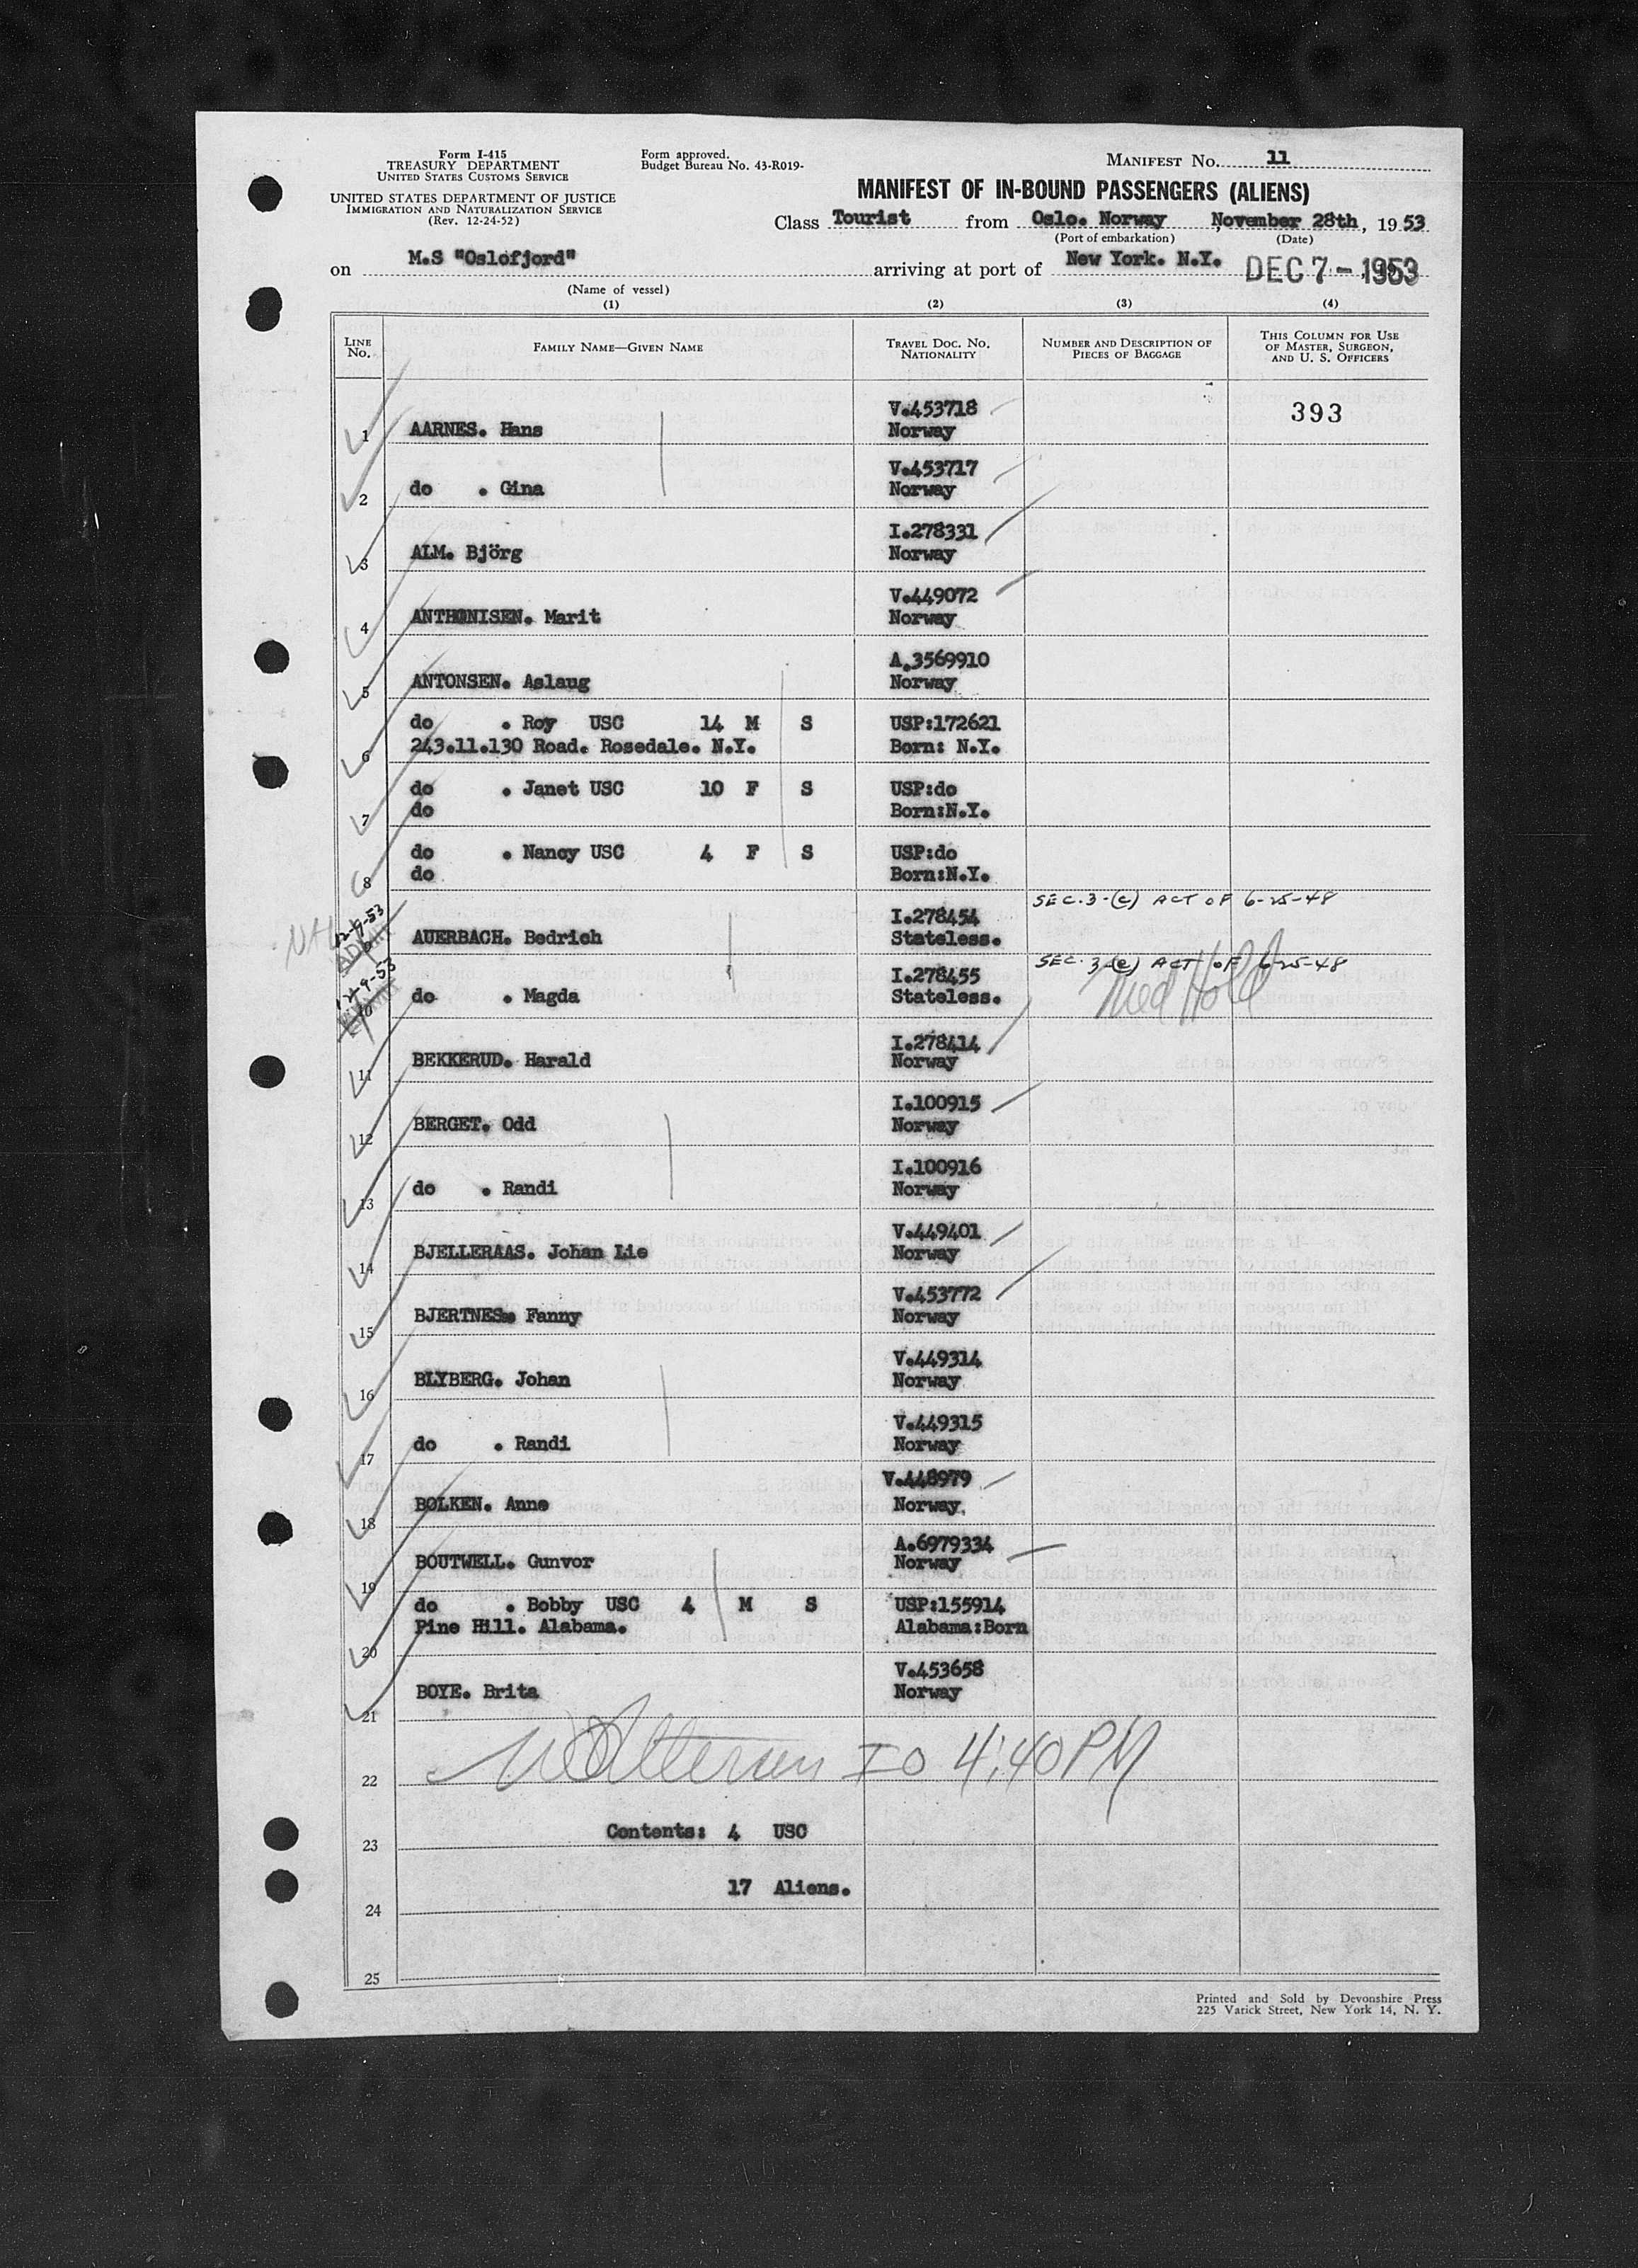 Form I-415
TREASURY DEPARTMENT
UNITED STATES CUSTOMS SERVICE
UNITED STATES DEPARTMENT OF JUSTICE
IMMIGRATION AND NATURALIZATION SERVICE
(Rev. 12-24-52)
Form approved.
Budget Bureau No. 43-R019-
MANIFEST NO. 11
MANIFEST OF IN-BOUND PASSENGERS (ALIENS)
Class Tourist from Oslo. Norway November 28th, 1953
(Port of embarkation) (Date)
on M.S "Oslofjord" arriving at port of New York. N.Y. DEC 7 - 1953
(Name of vessel)
(1) (2) (3) (4)
LINE NO. FAMILY NAME—GIVEN NAME TRAVEL DOC. NO. NATIONALITY NUMBER AND DESCRIPTION OF PIECES OF BAGGAGE THIS COLUMN FOR USE OF MASTER, SURGEON, AND U. S. OFFICERS
V.453718 393
1 AARNES. Hans Norway
V.453717
2 do . Gina Norway
I.278331
3 ALM. Björg Norway
V.449072
4 ANTHONISEN. Marit Norway
A.3569910
5 ANTONSEN. Aslaug Norway
do . Roy USC 14 M S USP:172621
6 243.11.130 Road. Rosedale. N.Y. Born: N.Y.
do . Janet USC 10 F S USP:do
7 do Born:N.Y.
do . Nancy USC 4 F S USP:do
8 do Born:N.Y.
SEC. 3-(c) ACT OF 6-25-48
12-9-53 I.278454
9 AUERBACH. Bedrich Stateless.
SEC. 3-(c) ACT OF 6-25-48
12-9-53 I.278455
10 do . Magda Stateless. Med Hold
I.278414
11 BEKKERUD. Harald Norway
I.100915
12 BERGET. Odd Norway
I.100916
13 do . Randi Norway
V.449401
14 BJELLERAAS. Johan Lie Norway
V.453772
15 BJERTNES. Fanny Norway
V.449314
16 BLYBERG. Johan Norway
V.449315
17 do . Randi Norway
V.448979
18 BOLKEN. Anne Norway
A.6979334
19 BOUTWELL. Gunvor Norway
do . Bobby USC 4 M S USP:155914
20 Pine Hill. Alabama. Alabama:Born
V.453658
21 BOYE. Brita Norway
22 IO 4:40 PM
23 Contents: 4 USC
24 17 Aliens.
25
Printed and Sold by Devonshire Press
225 Varick Street, New York 14, N. Y.